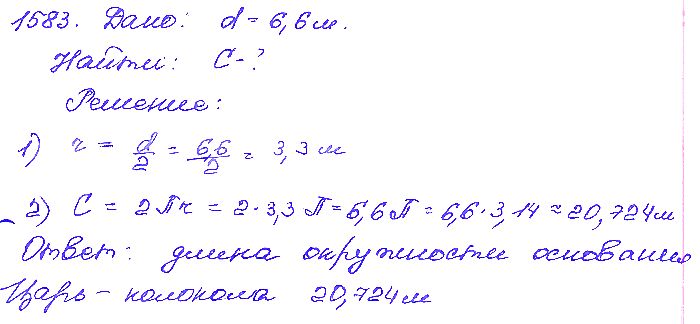 1583. Дано: d = 6,6 м.
Найти: C - ?
Решение:
1) r = d/2 = 6,6/2 = 3,3 м
2) C = 2Пr = 2·3,3 П = 6,6П = 6,6·3,14 ≈ 20,724м
Ответ: длина окружности основания
Царь-колокола 20,724м